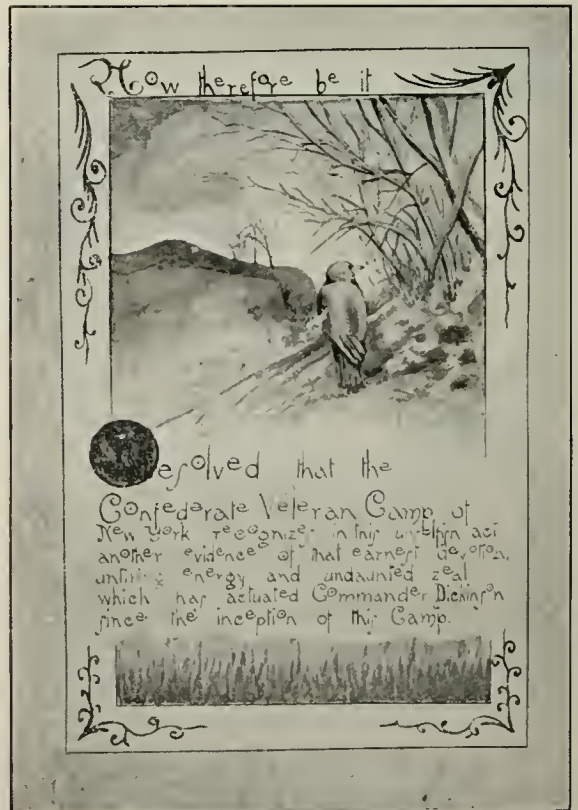 Now therefore be it
Resolved that the
Confederate Veteran Camp of
New York recognizes in this unselfish act
another evidence of that earnest devotion,
untiring energy and undaunted zeal
which has actuated Commander Dickinson
since the inception of this Camp.